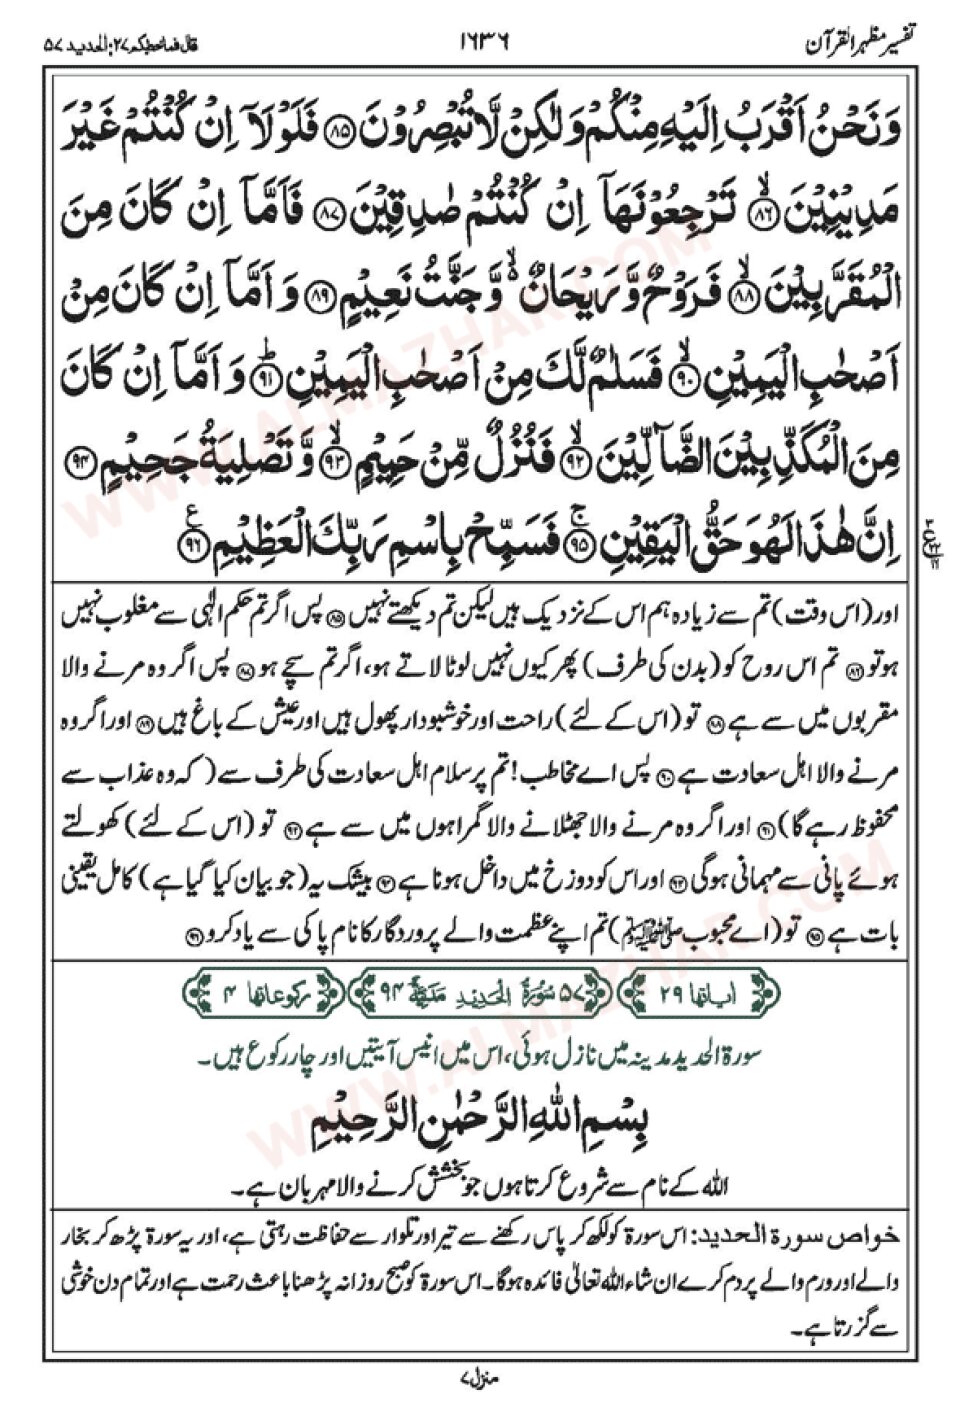 تفسیر مظہر القرآن
١٦٣٦
قال فما خطبکم ٢٧: الحدید ٥٧
وَنَحْنُ اَقْرَبُ اِلَيْهِ مِنْكُمْ وَلٰكِنْ لَّا تُبْصِرُوْنَ ﴿٨٥﴾ فَلَوْلَاۤ اِنْ كُنْتُمْ غَيْرَ
مَدِيْنِيْنَ ۙ﴿٨٦﴾ تَرْجِعُوْنَهَاۤ اِنْ كُنْتُمْ صٰدِقِيْنَ ﴿٨٧﴾ فَاَمَّاۤ اِنْ كَانَ مِنَ
الْمُقَرَّبِيْنَ ۙ﴿٨٨﴾ فَرَوْحٌ وَّرَيْحَانٌ ۙ۬ وَّجَنَّتُ نَعِيْمٍ ﴿٨٩﴾ وَاَمَّاۤ اِنْ كَانَ مِنْ
اَصْحٰبِ الْيَمِيْنِ ۙ﴿٩٠﴾ فَسَلٰمٌ لَّكَ مِنْ اَصْحٰبِ الْيَمِيْنِ ؕ﴿٩١﴾ وَاَمَّاۤ اِنْ كَانَ
مِنَ الْمُكَذِّبِيْنَ الضَّآلِّيْنَ ۙ﴿٩٢﴾ فَنُزُلٌ مِّنْ حَمِيْمٍ ۙ﴿٩٣﴾ وَّتَصْلِيَةُ جَحِيْمٍ ﴿٩٤﴾
اِنَّ هٰذَا لَهُوَ حَقُّ الْيَقِيْنِ ۚ﴿٩٥﴾ فَسَبِّحْ بِاسْمِ رَبِّكَ الْعَظِيْمِ ﴿٩٦﴾
اور (اس وقت) تم سے زیادہ ہم اس کے نزدیک ہیں لیکن تم دیکھتے نہیں ﴿٨٥﴾ پس اگر تم حکم الٰہی سے مغلوب نہیں
ہو تو ﴿٨٦﴾ تم اس روح کو (بدن کی طرف) پھر کیوں نہیں لوٹا لاتے ہو، اگر تم سچے ہو ﴿٨٧﴾ پس اگر وہ مرنے والا
مقربوں میں سے ہے ﴿٨٨﴾ تو (اس کے لئے) راحت اور خوشبودار پھول ہیں اور عیش کے باغ ہیں ﴿٨٩﴾ اور اگر وہ
مرنے والا اہل سعادت ہے ﴿٩٠﴾ پس اے مخاطب! تم پر سلام اہل سعادت کی طرف سے (کہ وہ عذاب سے
محفوظ رہے گا) ﴿٩١﴾ اور اگر وہ مرنے والا جھٹلانے والا گمراہوں میں سے ہے ﴿٩٢﴾ تو (اس کے لئے) کھولتے
ہوئے پانی سے مہمانی ہوگی ﴿٩٣﴾ اور اس کو دوزخ میں داخل ہونا ہے ﴿٩٤﴾ بیشک یہ (جو بیان کیا گیا ہے) کامل یقینی
بات ہے ﴿٩٥﴾ تو (اے محبوب ﷺ) تم اپنے عظمت والے پروردگار کا نام پاکی سے یاد کرو ﴿٩٦﴾
اٰیاتھا ٢٩
٥٧ سُوْرَةُ الْحَدِيْدِ مَدَنِيَّةٌ ٩٤
رکوعاتھا ٤
سورۃ الحدید مدینہ میں نازل ہوئی، اس میں انیس آیتیں اور چار رکوع ہیں۔
بِسْمِ اللهِ الرَّحْمٰنِ الرَّحِيْمِ
اللہ کے نام سے شروع کرتا ہوں جو بخشش کرنے والا مہربان ہے۔
خواص سورۃ الحدید: اس سورۃ کو لکھ کر پاس رکھنے سے تیر اور تلوار سے حفاظت رہتی ہے، اور یہ سورۃ پڑھ کر بخار
والے اور ورم والے پر دم کرے ان شاء اللہ تعالیٰ فائدہ ہوگا۔ اس سورۃ کو صبح روزانہ پڑھنا باعث رحمت ہے اور تمام دن خوشی
سے گزرتا ہے۔
منزل ٧
WWW.ALMAZHAR.COM
WWW.ALMAZHAR.COM